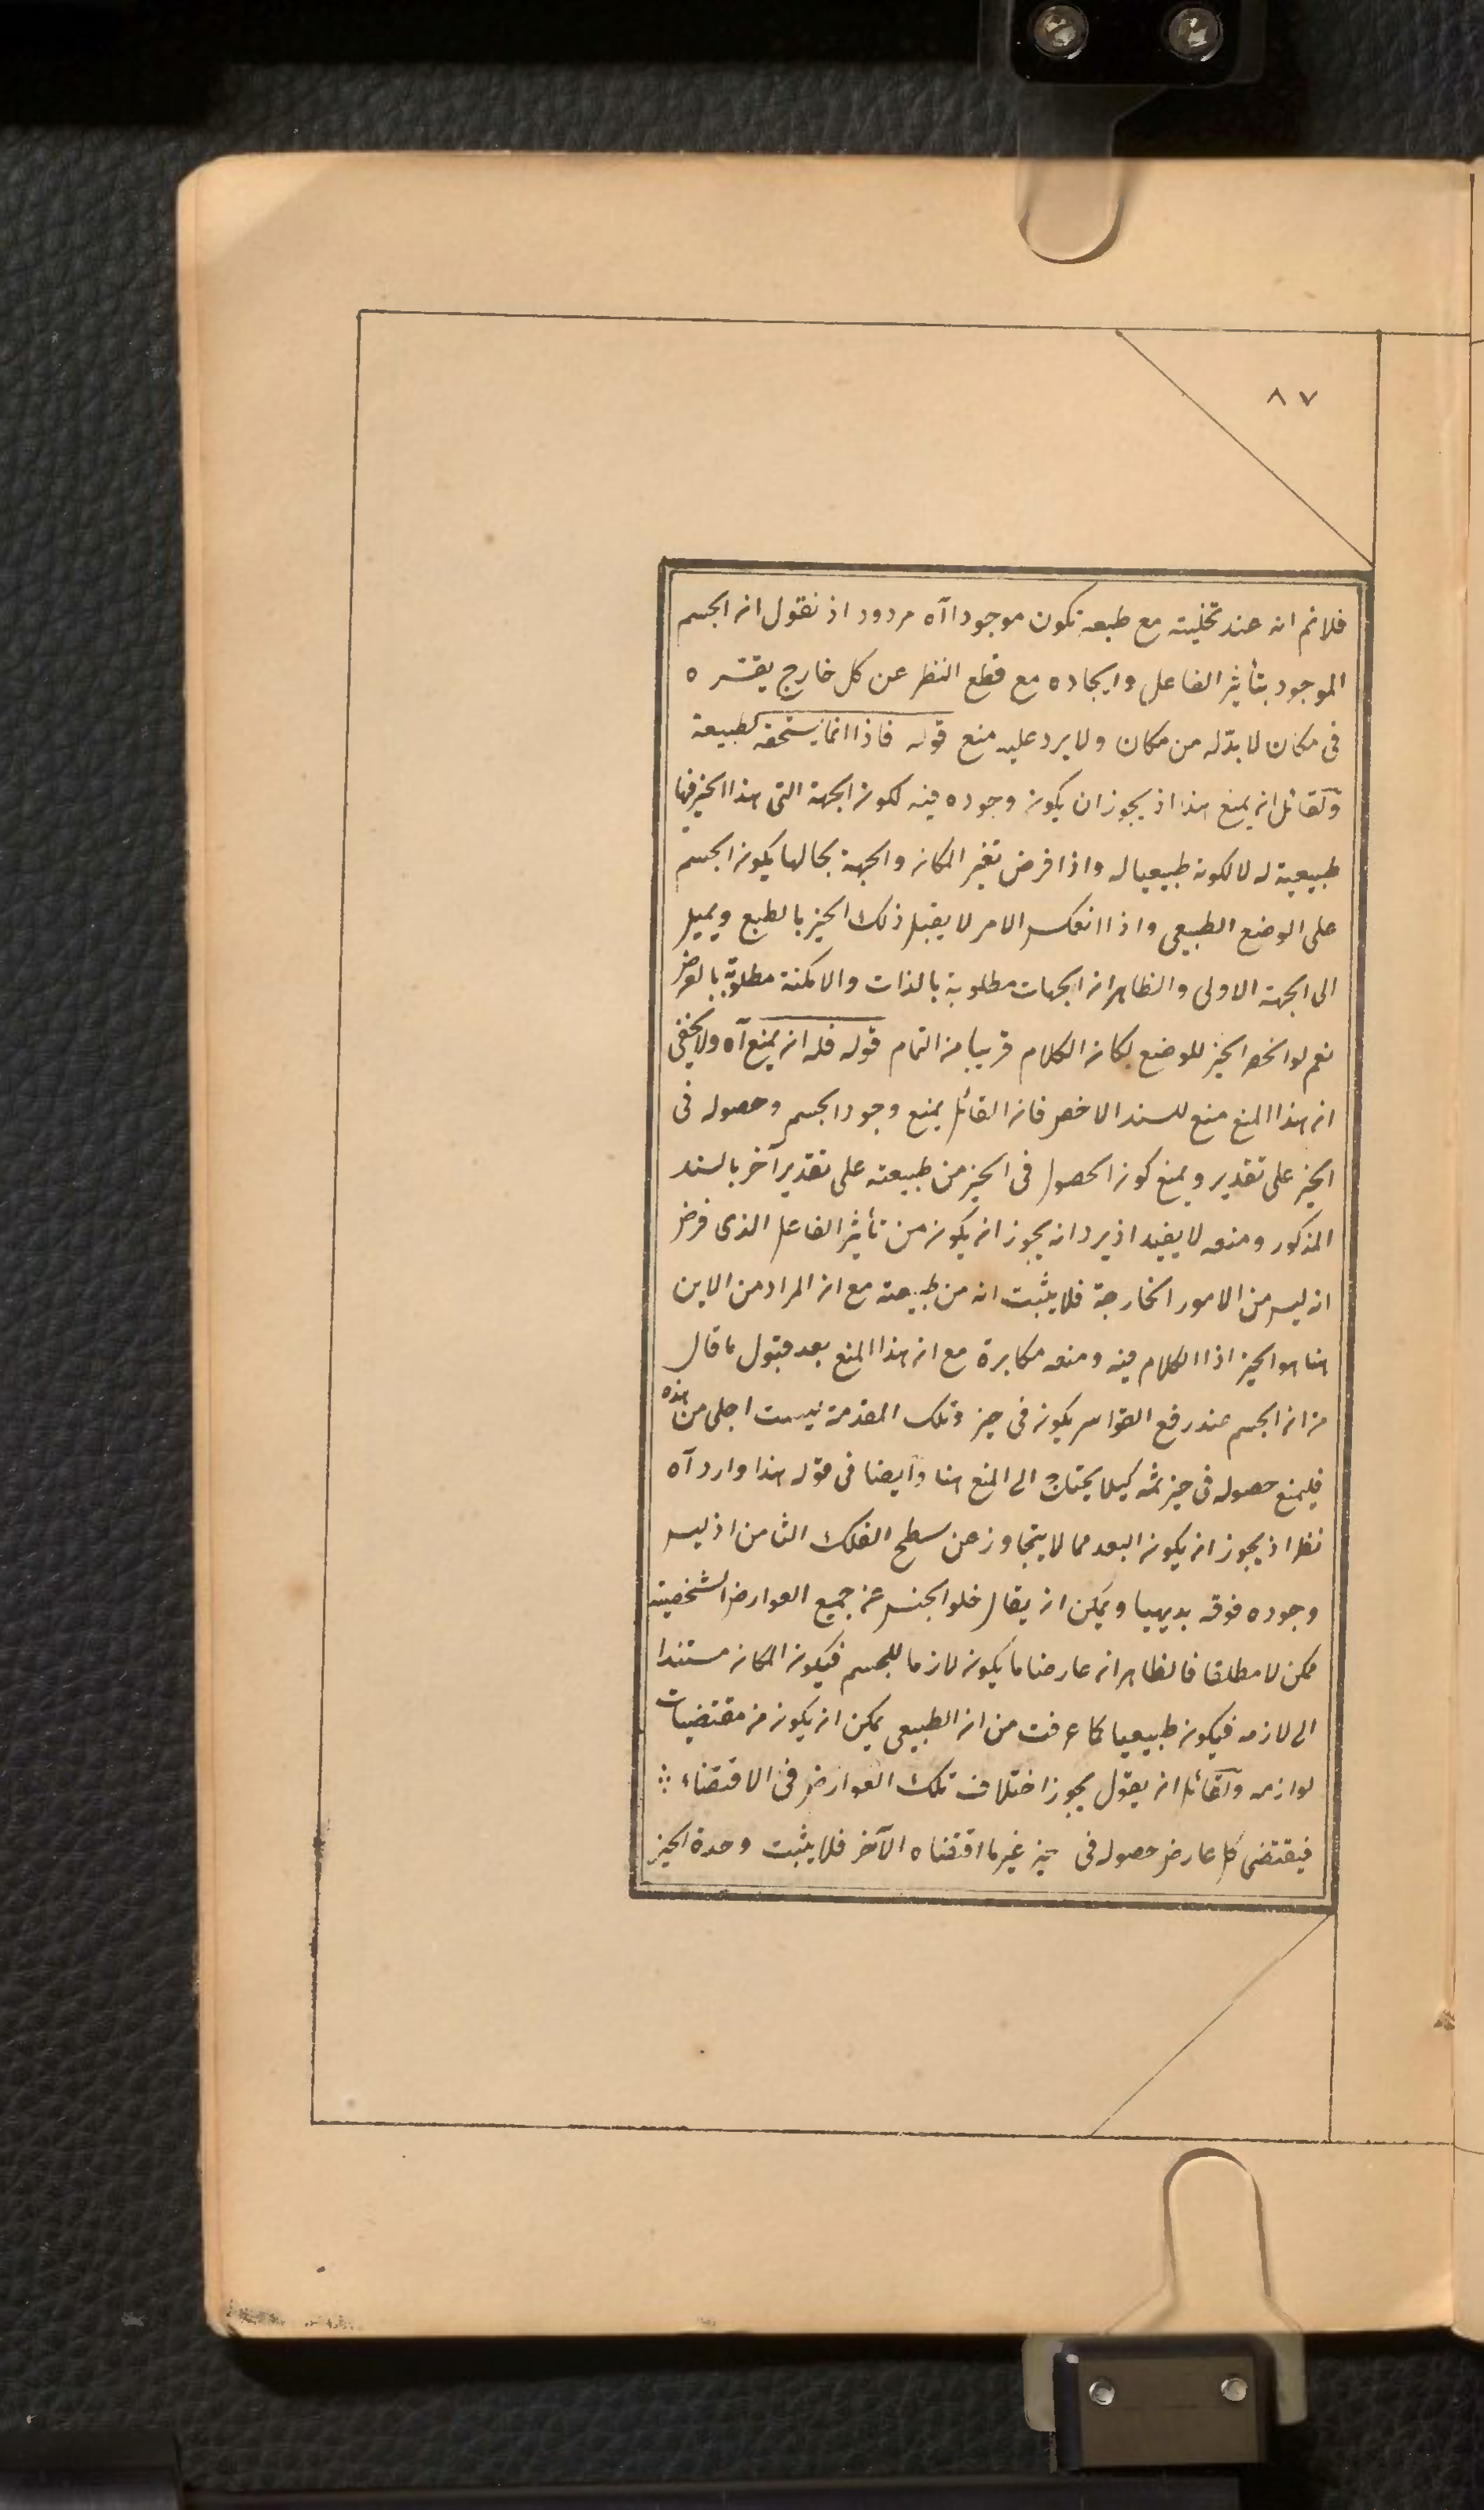 ٨٧
فلانم انه عند تخليته مع طبعه تكون موجودا آه مردود اذ نقول ان الجسم
الموجود بتأثير الفاعل وايجاده مع قطع النظر عن كل خارج يقسره
فى مكان لا بد له من مكان ولا يرد عليه منع قوله فاذا انما يستحقه لطبيعة
ولقائل ان يمنع هذا اذ يجوز ان يكون وجوده فيه لكون الجهة التى هذا الحيز فيها
طبيعية له لا لكونه طبيعيا له واذا فرض تغير المكان والجهة بحالها يكون الجسم
على الوضع الطبيعى واذا انعكس الامر لا يقبل ذلك الحيز بالطبع ويميل
الى الجهة الاولى والظاهر ان الجهات مطلوبة بالذات والامكنة مطلوبة بالعرض
نعم لو انحصر الحيز للوضع لكان الكلام قريبا من التمام قوله فله ان يمنع آه ولا يخفى
ان هذا المنع منع للسند الاخص فان القائل يمنع وجود الجسم وحصوله فى
الحيز على تقدير ويمنع كون الحصول فى الحيز من طبيعته على تقدير آخر بالسند
المذكور ومنعه لا يفيد اذ يرد انه يجوز ان يكون من تأثير الفاعل الذى فرض
انه ليس من الامور الخارجة فلا يثبت انه من طبيعته مع ان المراد من الاين
هنا هو الحيز اذا الكلام فيه ومنعه مكابرة مع ان هذا المنع بعد قبول ما قال
من ان الجسم عند رفع القواسر يكون فى حيز وتلك المقدمة ليست اجلى من هذه
فليمنع حصوله فى حيز ثمه كيلا يحتاج الى المنع هنا وايضا فى قوله هذا وارد آه
نظر اذ يجوز ان يكون البعد مما لا يتجاوز عن سطح الفلك الثامن اذ ليس
وجوده فوقه بديهيا ويمكن ان يقال خلو الجنس عن جميع العوارض الشخصية
ممكن لا مطلقا فالظاهر ان عارضا ما يكون لازما للجسم فيكون المكان مستندا
الى لازمه فيكون طبيعيا كما عرفت من ان الطبيعى يمكن ان يكون من مقتضيات
لوازمه ولقائل ان يقول يجوز اختلاف تلك العوارض فى الاقتضاء ∴
فيقتضى كل عارض حصوله فى حيز غير ما اقتضاه الآخر فلا يثبت وحدة الحيز